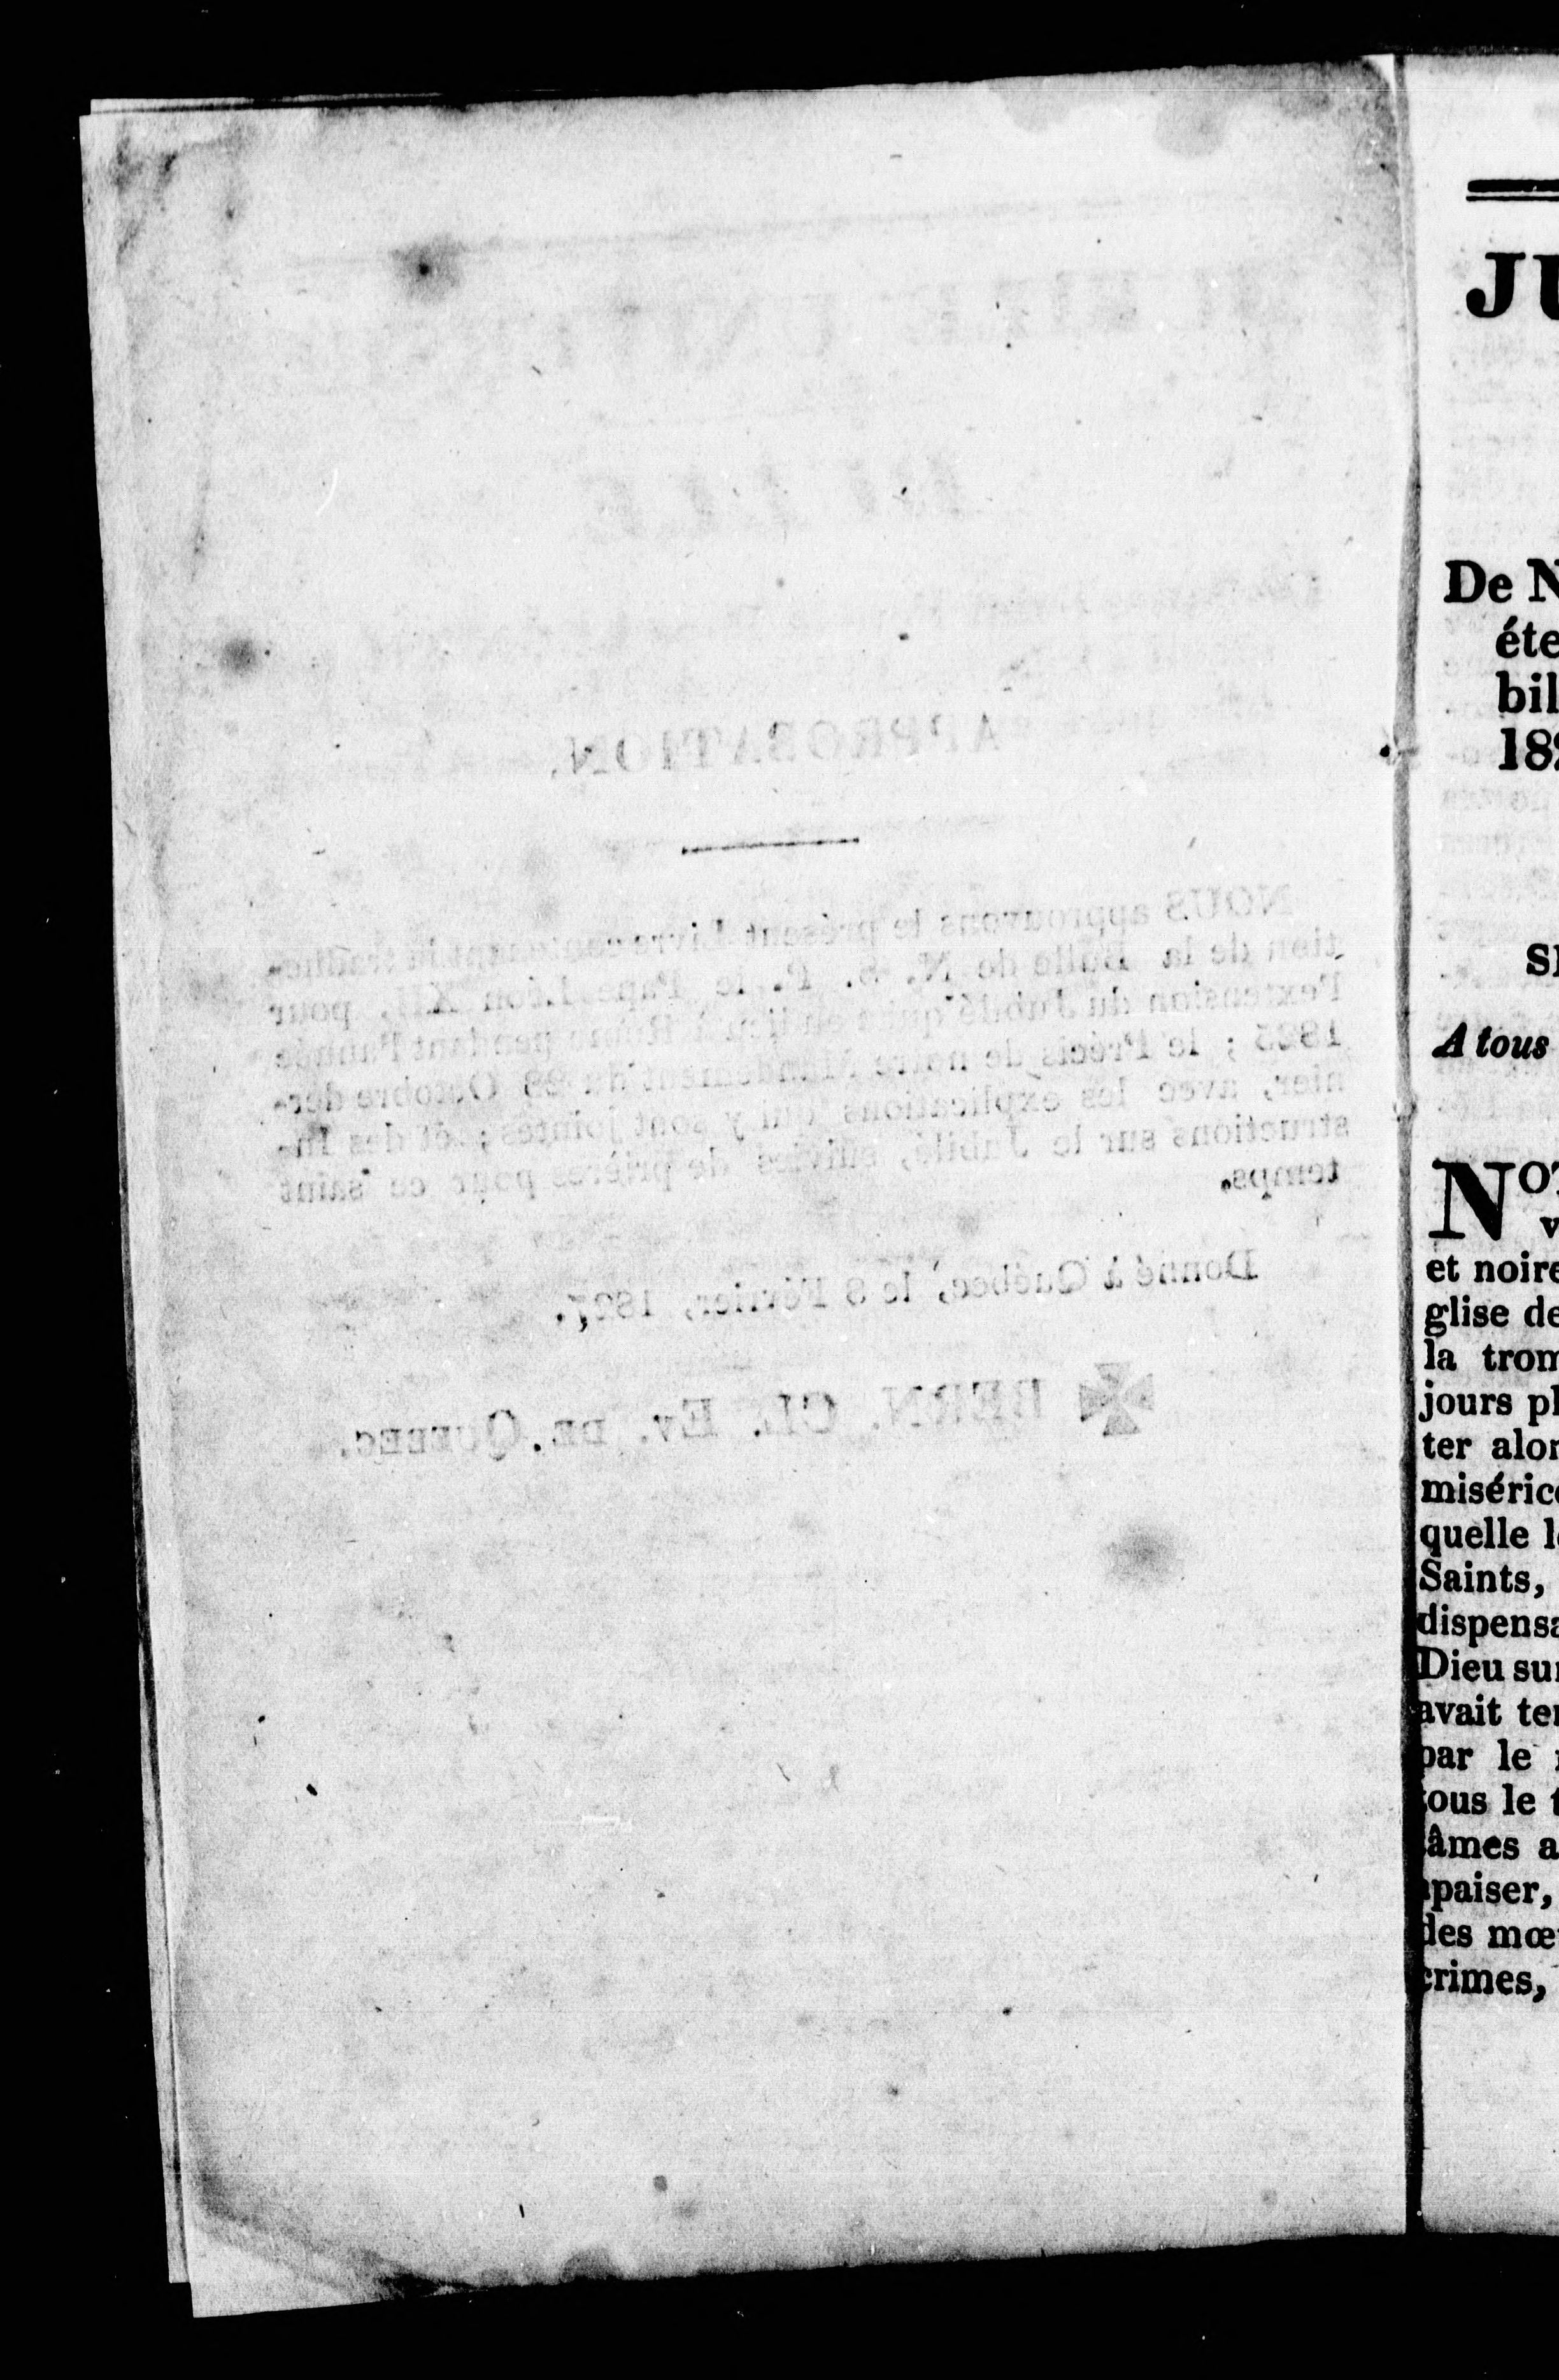 APPROBATION.
NOUS approuvons le présent Livre contenant la traduc-
tion de la Bulle de N. S. P. le Pape Léon XII, pour
l'extension du Jubilé qui a eu lieu à Rome pendant l'année
1825 ; le Précis de notre Mandement du 28 Octobre der-
nier, avec les explications qui y sont jointes ; et des In-
structions sur le Jubilé, suivies de prières pour ce saint
temps.
Donné à Québec, le 8 Février, 1827.
✠ BERN. CL. EV. DE QUEBEC.
JU
De N
éte
bil
18
A tous
NO
v
et noire
glise de
la trom
jours pl
ter alor
miséric
quelle l
Saints,
dispensa
Dieu sur
avait te
par le
tous le t
âmes a
paiser,
des mœ
crimes,